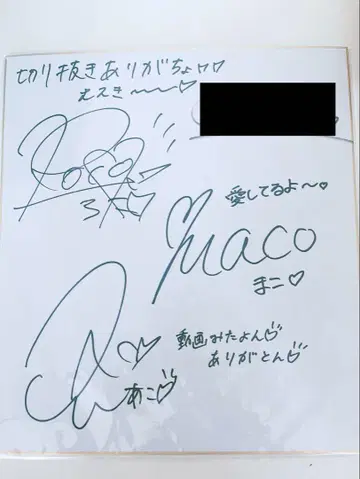 切り抜きありがちょ♡♡
ええき〜〜♡
Roco
ろこ♡
愛してるよ〜♡
Maco
まこ♡
動画みたよん♡
ありがとん♡
あこ♡